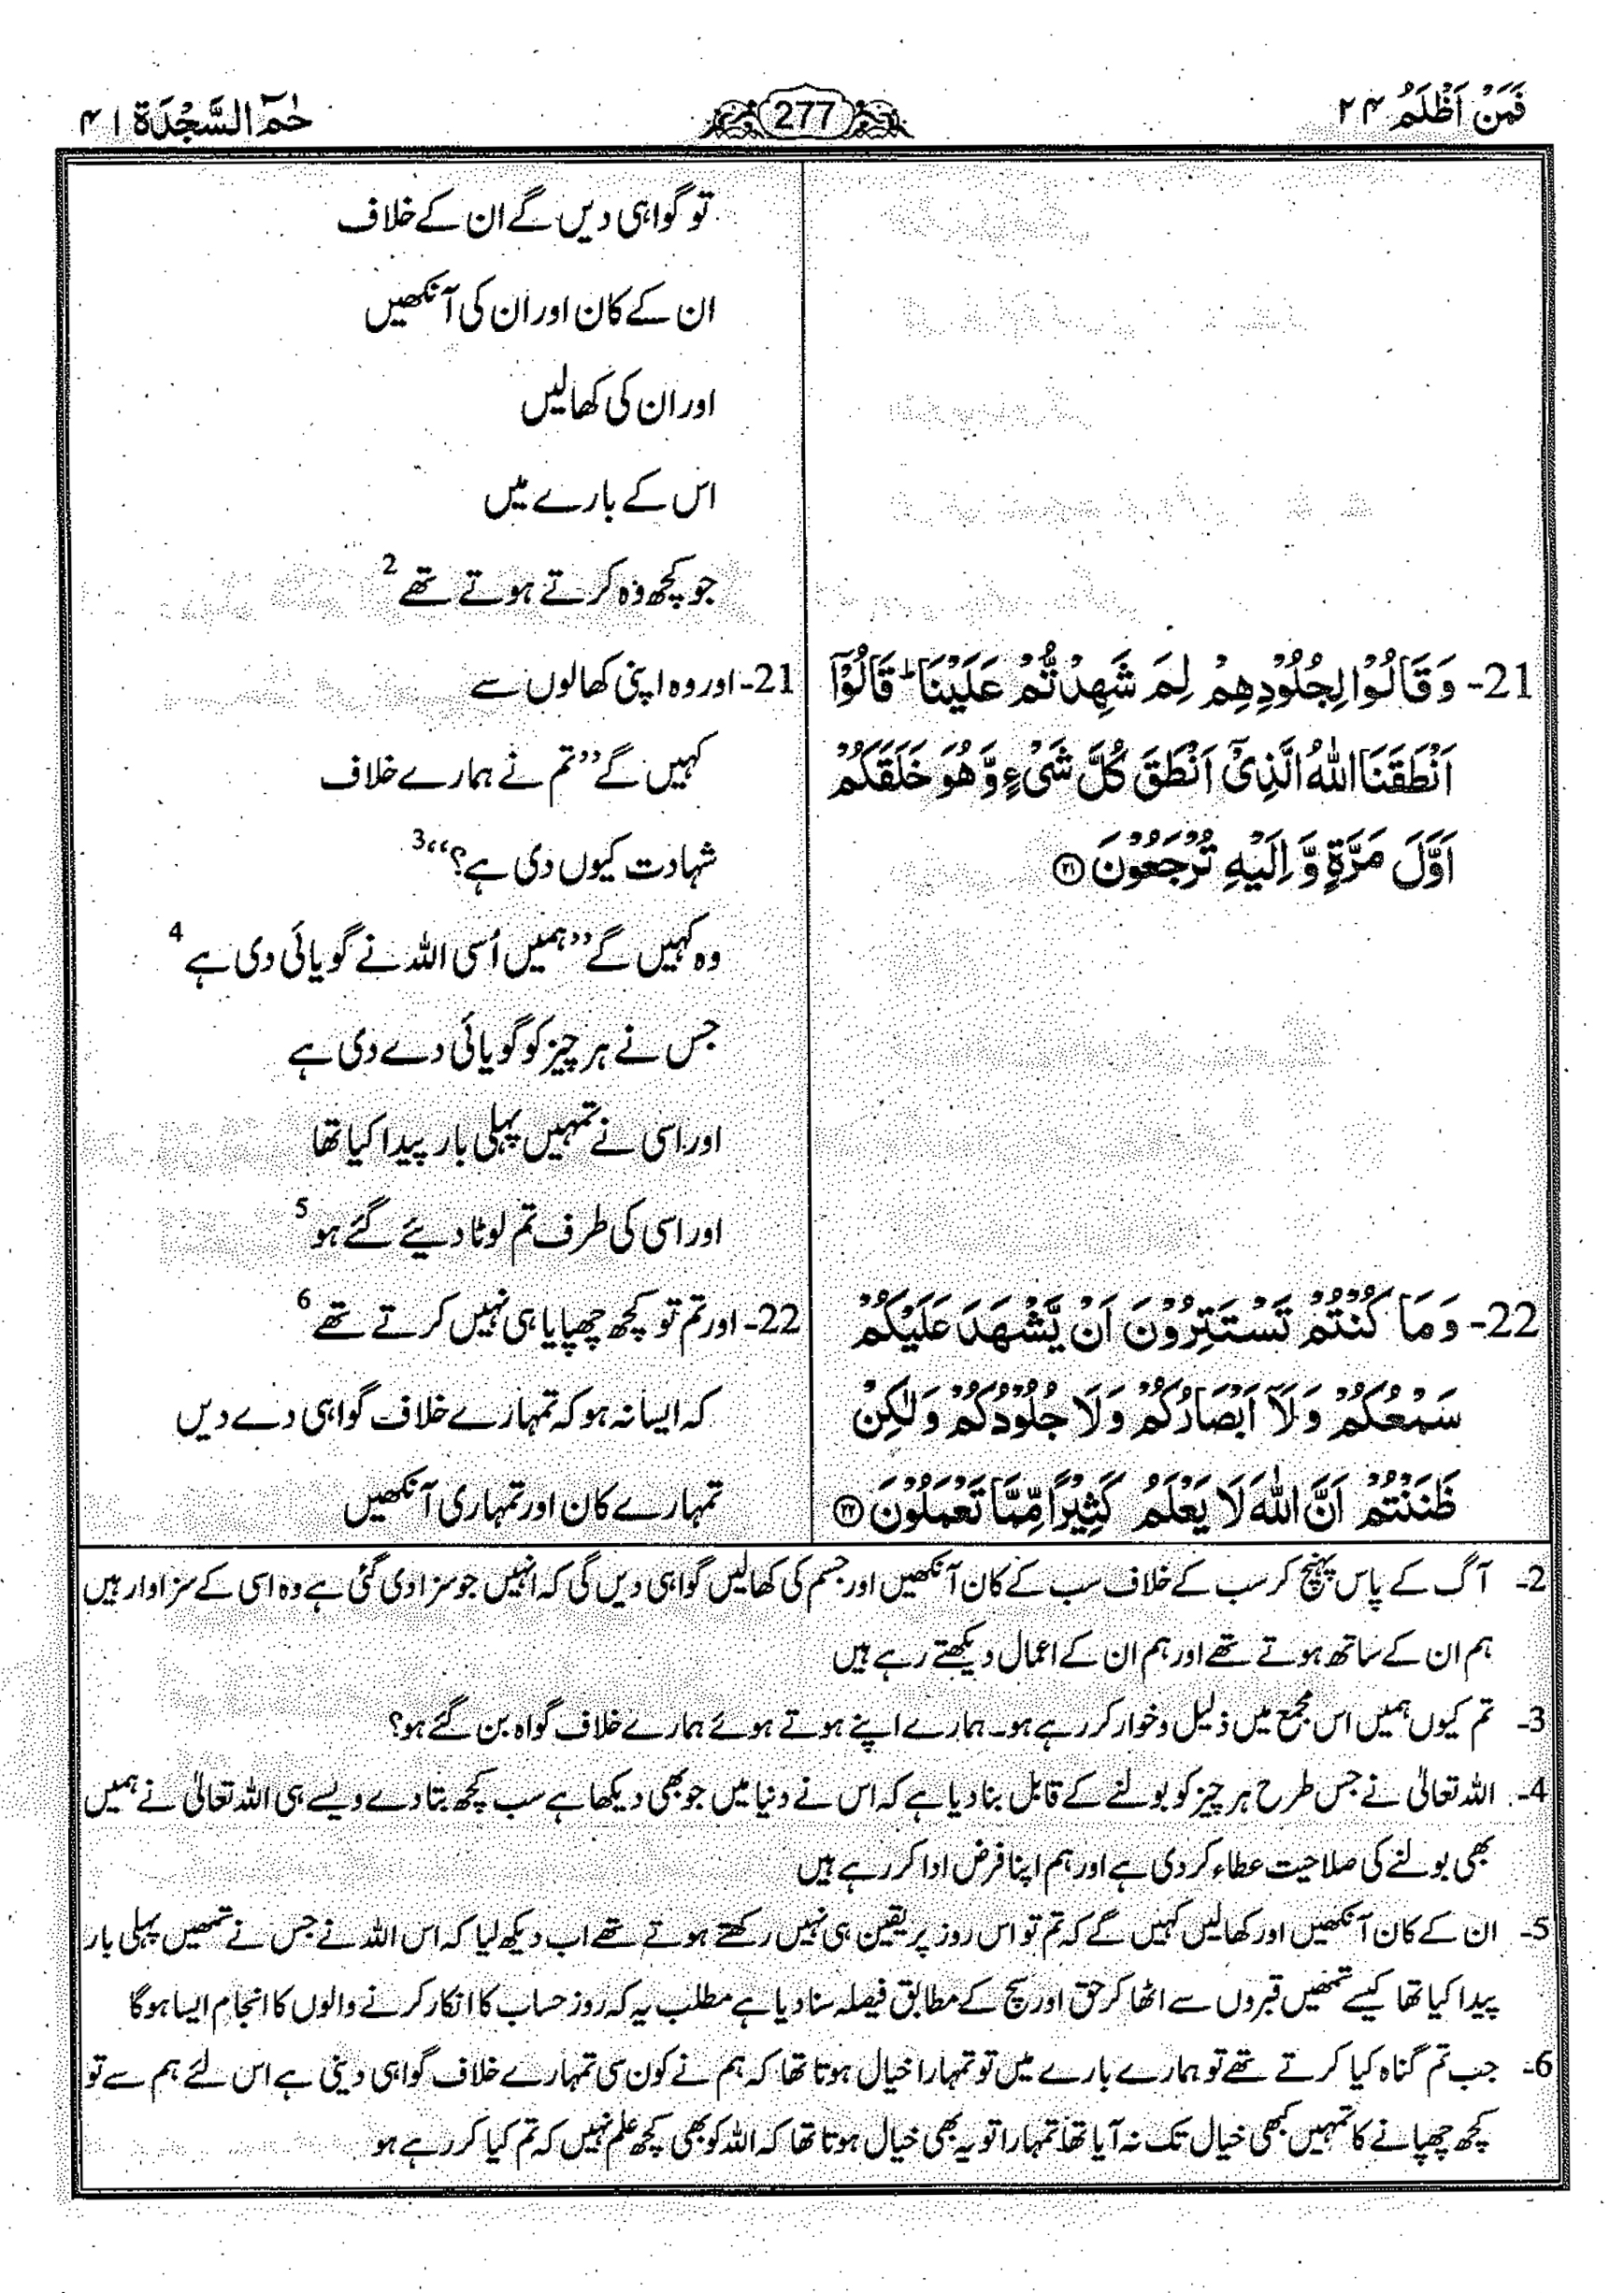 فَمَنْ اَظْلَمُ ۲۴
277
حٰمٓ السَّجْدَة ۴۱
تو گواہی دیں گے ان کے خلاف
ان کے کان اور ان کی آنکھیں
اور ان کی کھالیں
اس کے بارے میں
جو کچھ وہ کرتے ہوتے تھے 2
21- وَقَالُوْا لِجُلُوْدِهِمْ لِمَ شَهِدْتُّمْ عَلَيْنَا ؕ قَالُوْٓا
اَنْطَقَنَا اللّٰهُ الَّذِيْٓ اَنْطَقَ كُلَّ شَيْءٍ وَّهُوَ خَلَقَكُمْ
اَوَّلَ مَرَّةٍ وَّاِلَيْهِ تُرْجَعُوْنَ ۲۱
21- اور وہ اپنی کھالوں سے
کہیں گے ”تم نے ہمارے خلاف
شہادت کیوں دی ہے؟“ 3
وہ کہیں گے ”ہمیں اُسی اللہ نے گویائی دی ہے 4
جس نے ہر چیز کو گویائی دے دی ہے
اور اسی نے تمہیں پہلی بار پیدا کیا تھا
اور اسی کی طرف تم لوٹا دیئے گئے ہو 5
22- وَمَا كُنْتُمْ تَسْتَتِرُوْنَ اَنْ يَّشْهَدَ عَلَيْكُمْ
سَمْعُكُمْ وَلَآ اَبْصَارُكُمْ وَلَا جُلُوْدُكُمْ وَلٰكِنْ
ظَنَنْتُمْ اَنَّ اللّٰهَ لَا يَعْلَمُ كَثِيْرًا مِّمَّا تَعْمَلُوْنَ ۲۲
22- اور تم تو کچھ چھپایا ہی نہیں کرتے تھے 6
کہ ایسا نہ ہو کہ تمہارے خلاف گواہی دے دیں
تمہارے کان اور تمہاری آنکھیں
2- آگ کے پاس پہنچ کر سب کے خلاف سب کے کان آنکھیں اور جسم کی کھالیں گواہی دیں گی کہ انہیں جو سزا دی گئی ہے وہ اسی کے سزاوار ہیں
ہم ان کے ساتھ ہوتے تھے اور ہم ان کے اعمال دیکھتے رہے ہیں
3- تم کیوں ہمیں اس مجمع میں ذلیل و خوار کر رہے ہو۔ ہمارے اپنے ہوتے ہوئے ہمارے خلاف گواہ بن گئے ہو؟
4- اللہ تعالیٰ نے جس طرح ہر چیز کو بولنے کے قابل بنا دیا ہے کہ اس نے دنیا میں جو بھی دیکھا ہے سب کچھ بتا دے ویسے ہی اللہ تعالیٰ نے ہمیں
بھی بولنے کی صلاحیت عطاء کر دی ہے اور ہم اپنا فرض ادا کر رہے ہیں
5- ان کے کان آنکھیں اور کھالیں کہیں گے کہ تم تو اس روز پر یقین ہی نہیں رکھتے ہوتے تھے اب دیکھ لیا کہ اس اللہ نے جس نے تمھیں پہلی بار
پیدا کیا تھا کیسے تمھیں قبروں سے اٹھا کر حق اور سچ کے مطابق فیصلہ سنا دیا ہے مطلب یہ کہ روز حساب کا انکار کرنے والوں کا انجام ایسا ہوگا
6- جب تم گناہ کیا کرتے تھے تو ہمارے بارے میں تو تمہارا خیال ہوتا تھا کہ ہم نے کون سی تمہارے خلاف گواہی دینی ہے اس لئے ہم سے تو
کچھ چھپانے کا تمہیں کبھی خیال تک نہ آیا تھا تمہارا تو یہ بھی خیال ہوتا تھا کہ اللہ کو بھی کچھ علم نہیں کہ تم کیا کر رہے ہو